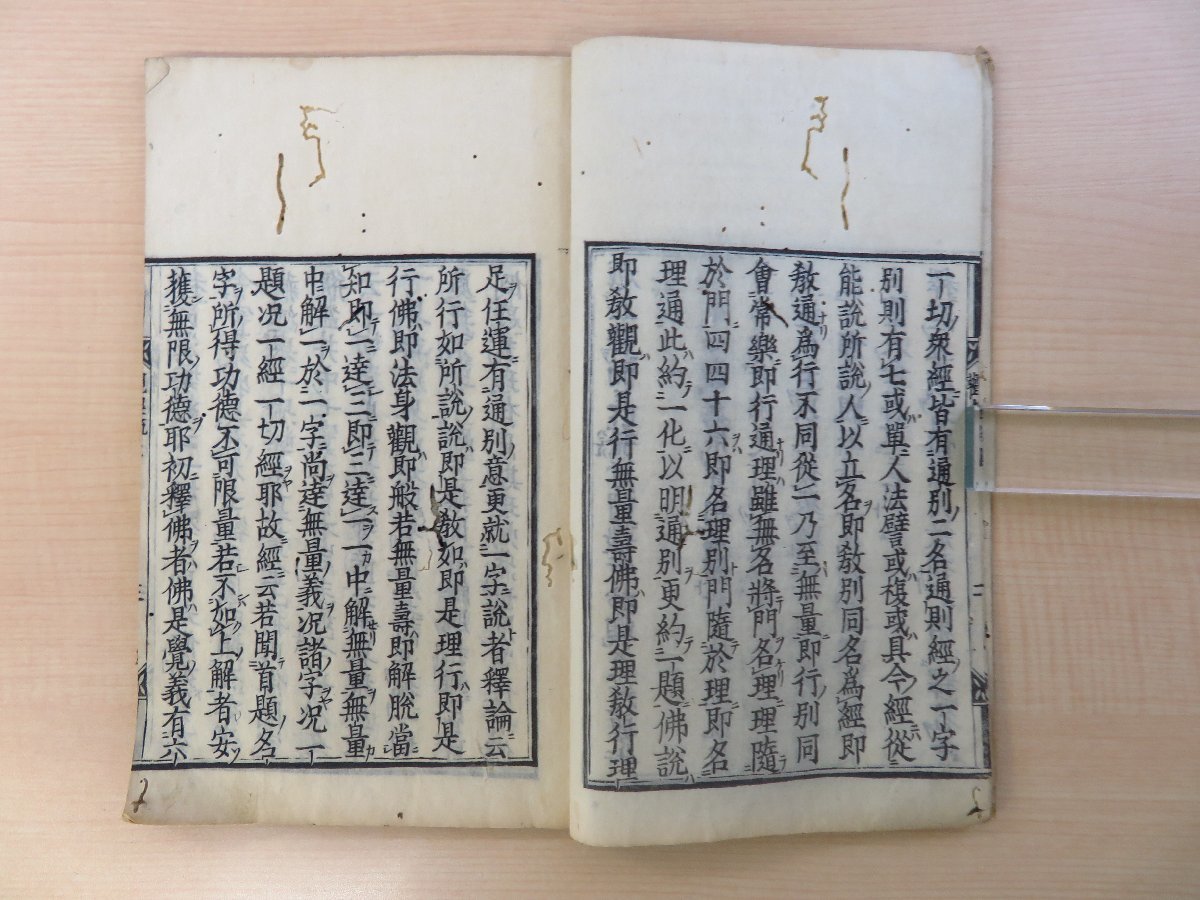 一切衆經皆有通別二名通則經之一字
別則有七或單人法譬或複或具今經從
能說所說人以立名即敎別同名爲經即
敎通爲行不同從一乃至無量即行別同
會常樂即行通理雖無名將門名理理隨
於門四四十六即名理別門隨於理即名
理通此約一化以明通別更約一題佛說
即敎觀即是行無量壽佛即是理敎行理
足任運有通別意更就一字說者釋論云
所行如所說說即是敎如即是理行即是
行佛即法身觀即般若無量壽即解脫當
知即一達三即三達一一中解無量無量
中解一於一字尚達無量義况諸字况一
題况一經一切經耶故經云若聞首題名
字所得功德不可限量若不如上解者安
獲無限功德耶初釋佛者佛是覺義有六